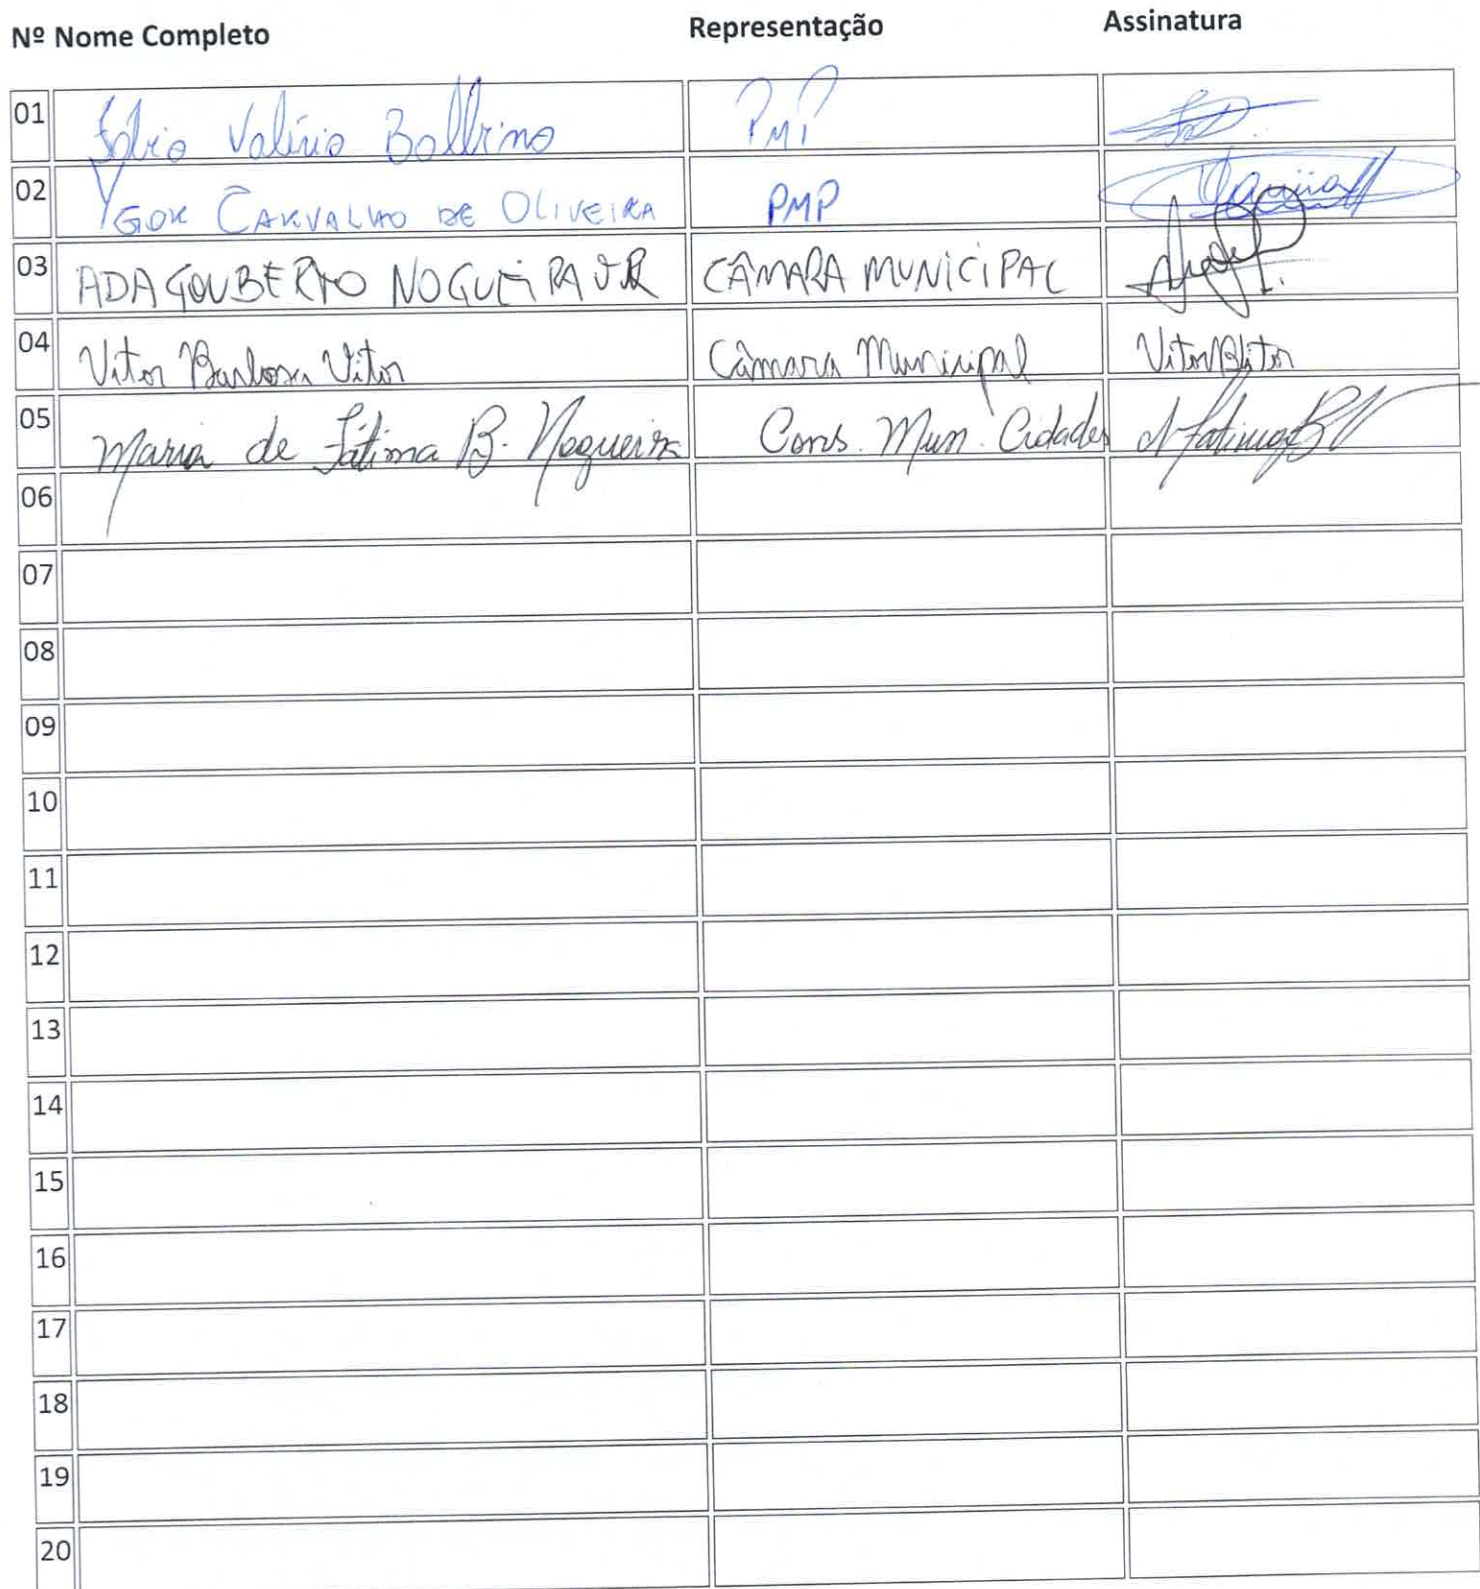 Nº Nome Completo Representação Assinatura
01 Fábio Valério Ballrino PMP
02 YGOR CARVALHO DE OLIVEIRA PMP
03 ADAGOUBERTO NOGUEIRA JR CÂMARA MUNICIPAL
04 Vitor Barbosa Vitor Câmara Municipal Vitor B Vitor
05 Maria de Fátima B. Nogueira Cons. Mun. Cidades M Fatima B N
06
07
08
09
10
11
12
13
14
15
16
17
18
19
20